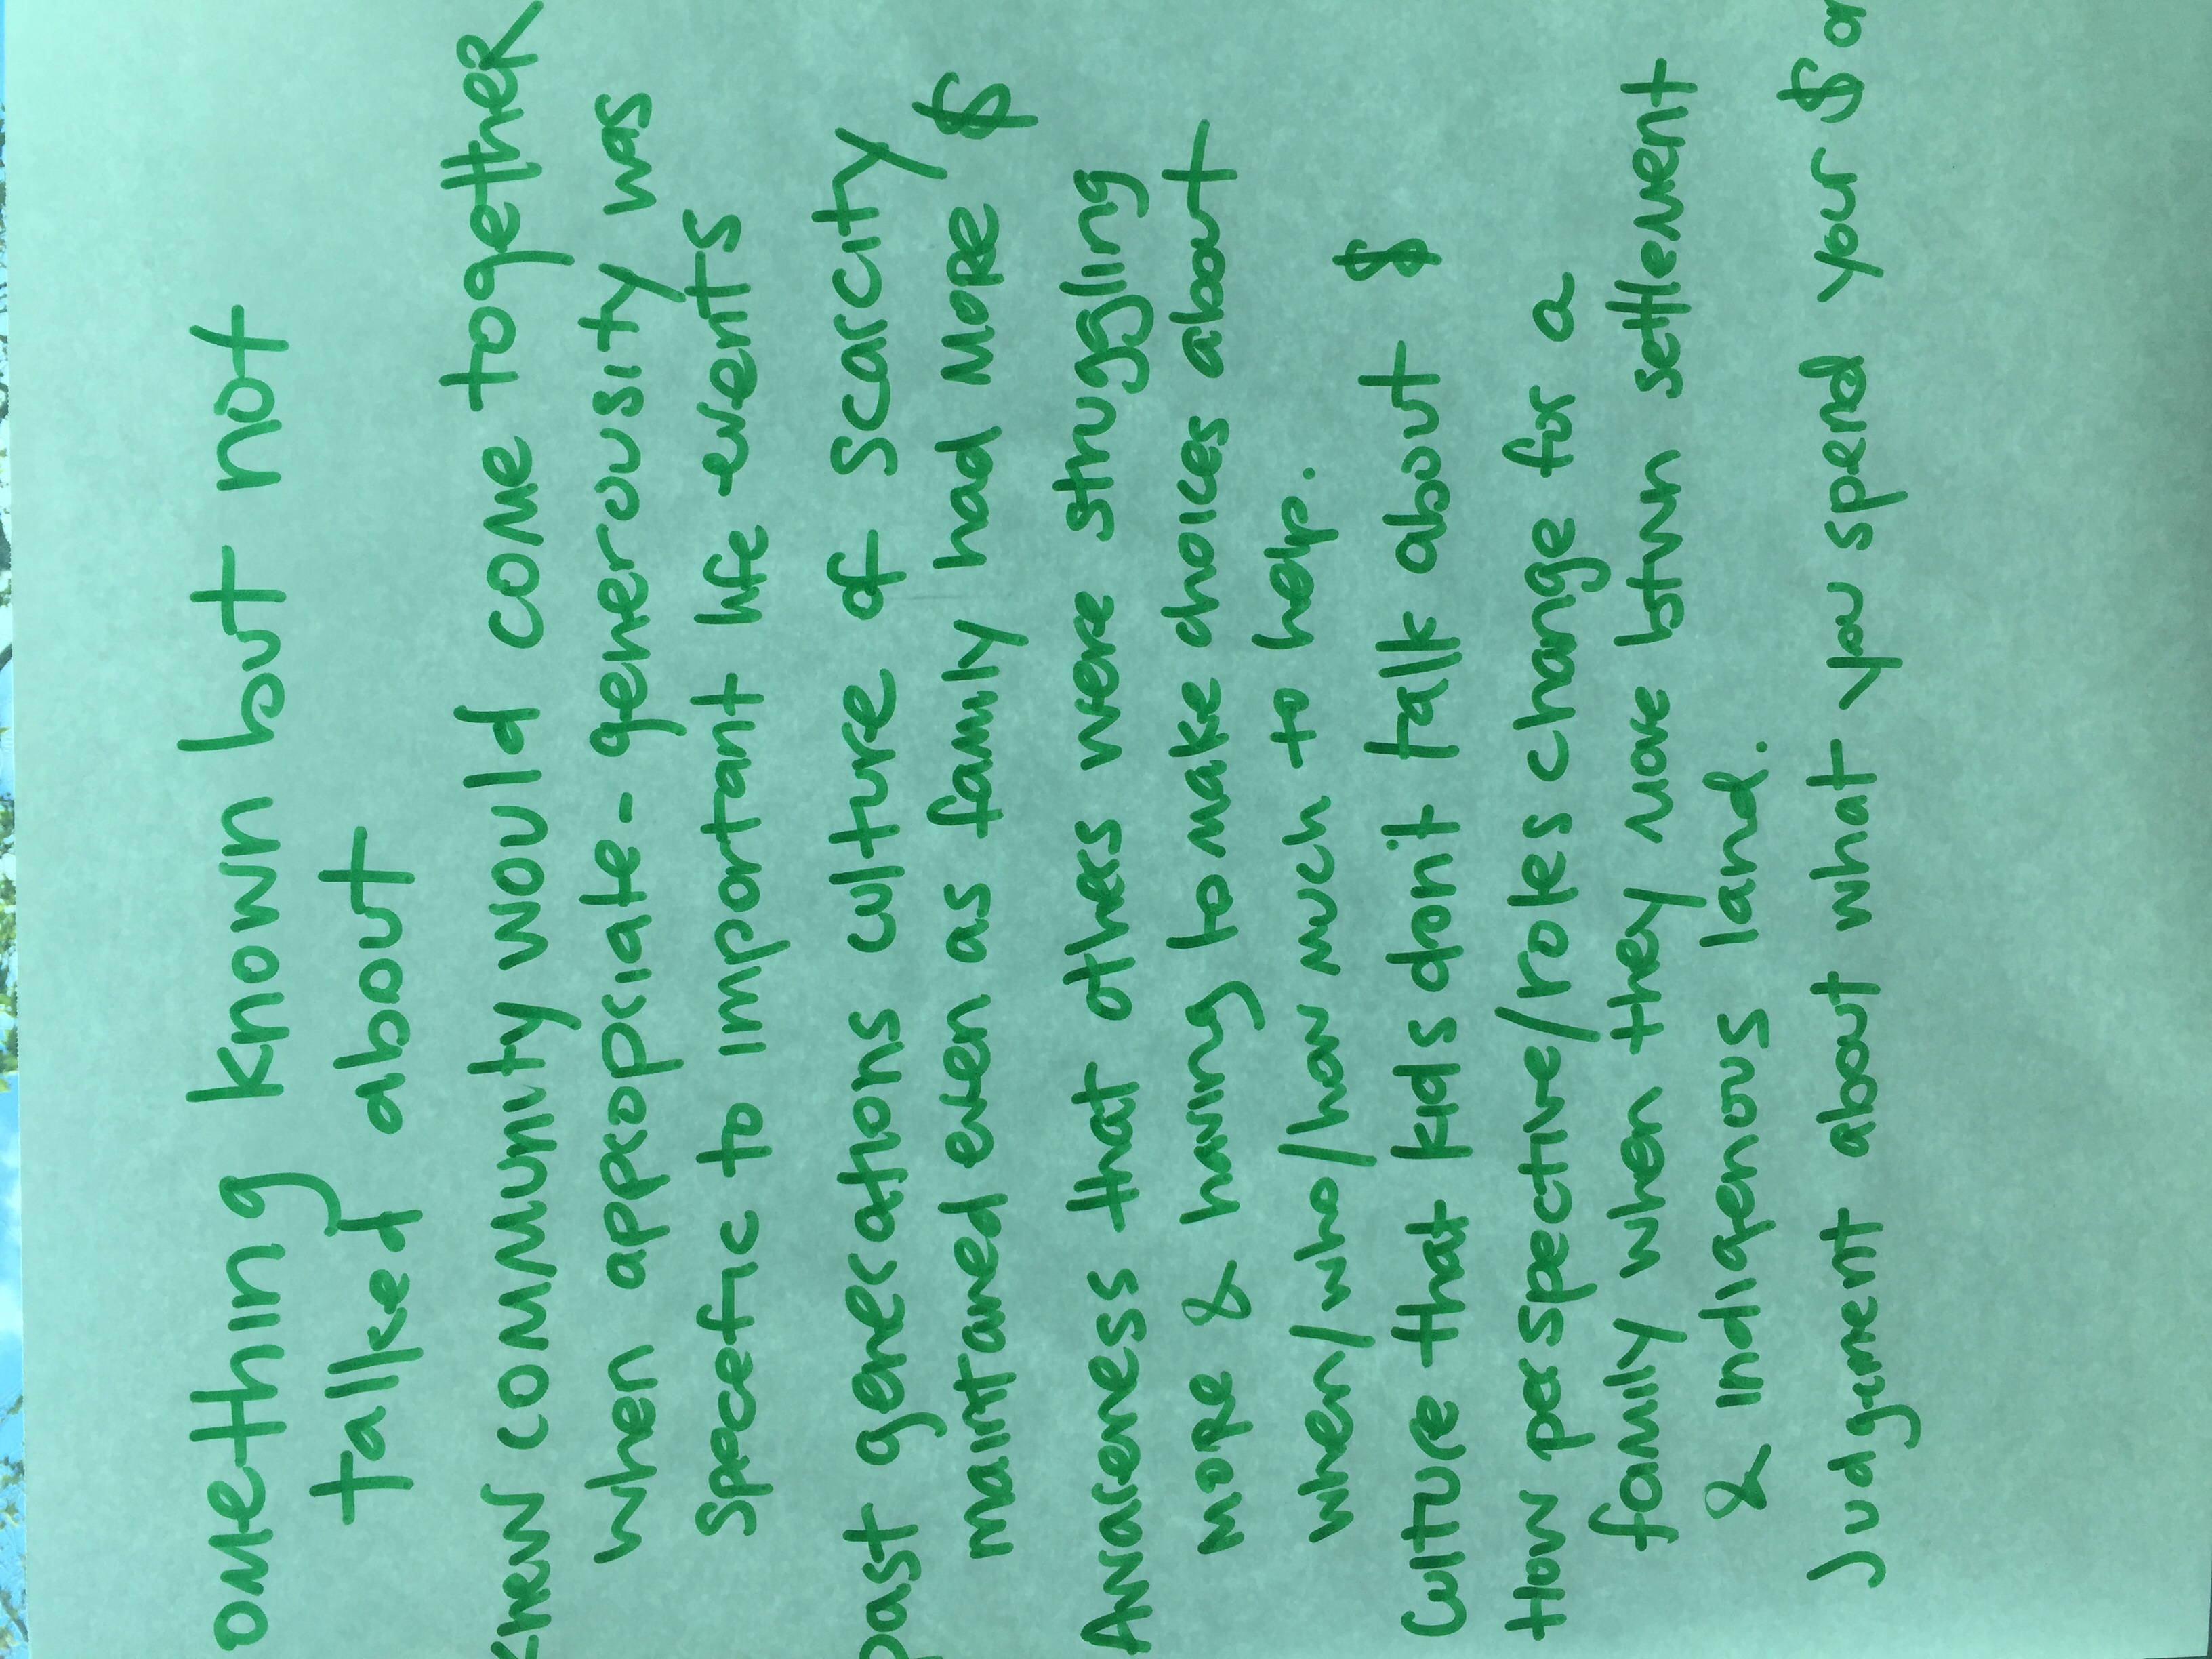 omething known but not
talked about
knew community would come together
when appropriate - generousity was
specific to important life events
past generations culture of scarcity
maintained even as family had more $
Awareness that others were struggling
more & having to make choices about
when/who/how much to help.
Culture that kids don't talk about $
How perspective/roles change for a
family when they move btwn settlement
& indigenous land.
Judgement about what you spend your $ on